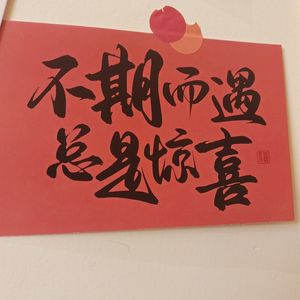 不期而遇
总是惊喜